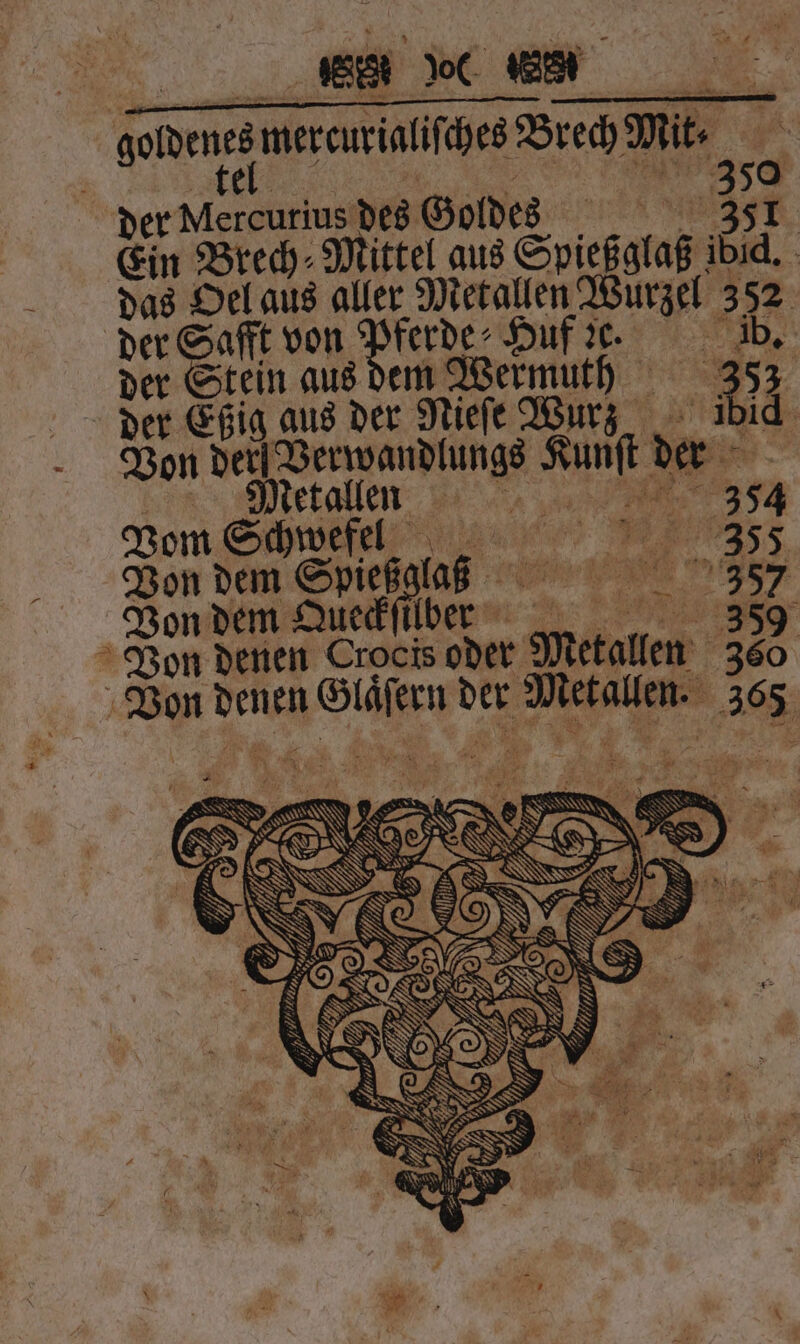 )o(
goldenes mercurialiſches Brech Mit⸗
tel 350
der Mercurius des Goldes 351
Ein Brech⸗Mittel aus Spießglaß ibid.
das Oel aus aller Metallen Wurzel 352
der Safft von Pferde⸗Huf ꝛc. ib.
der Stein aus dem Wermuth 353
der Eßig aus der Nieſe Wurz ibid
Von der Verwandlungs Kunſt der
Metallen 354
Vom Schwefel 355
Von dem Spießglaß 357
Von dem Queckſilber 359
Von denen Crocis oder Metallen 360
Von denen Glaͤſern der Metallen. 365